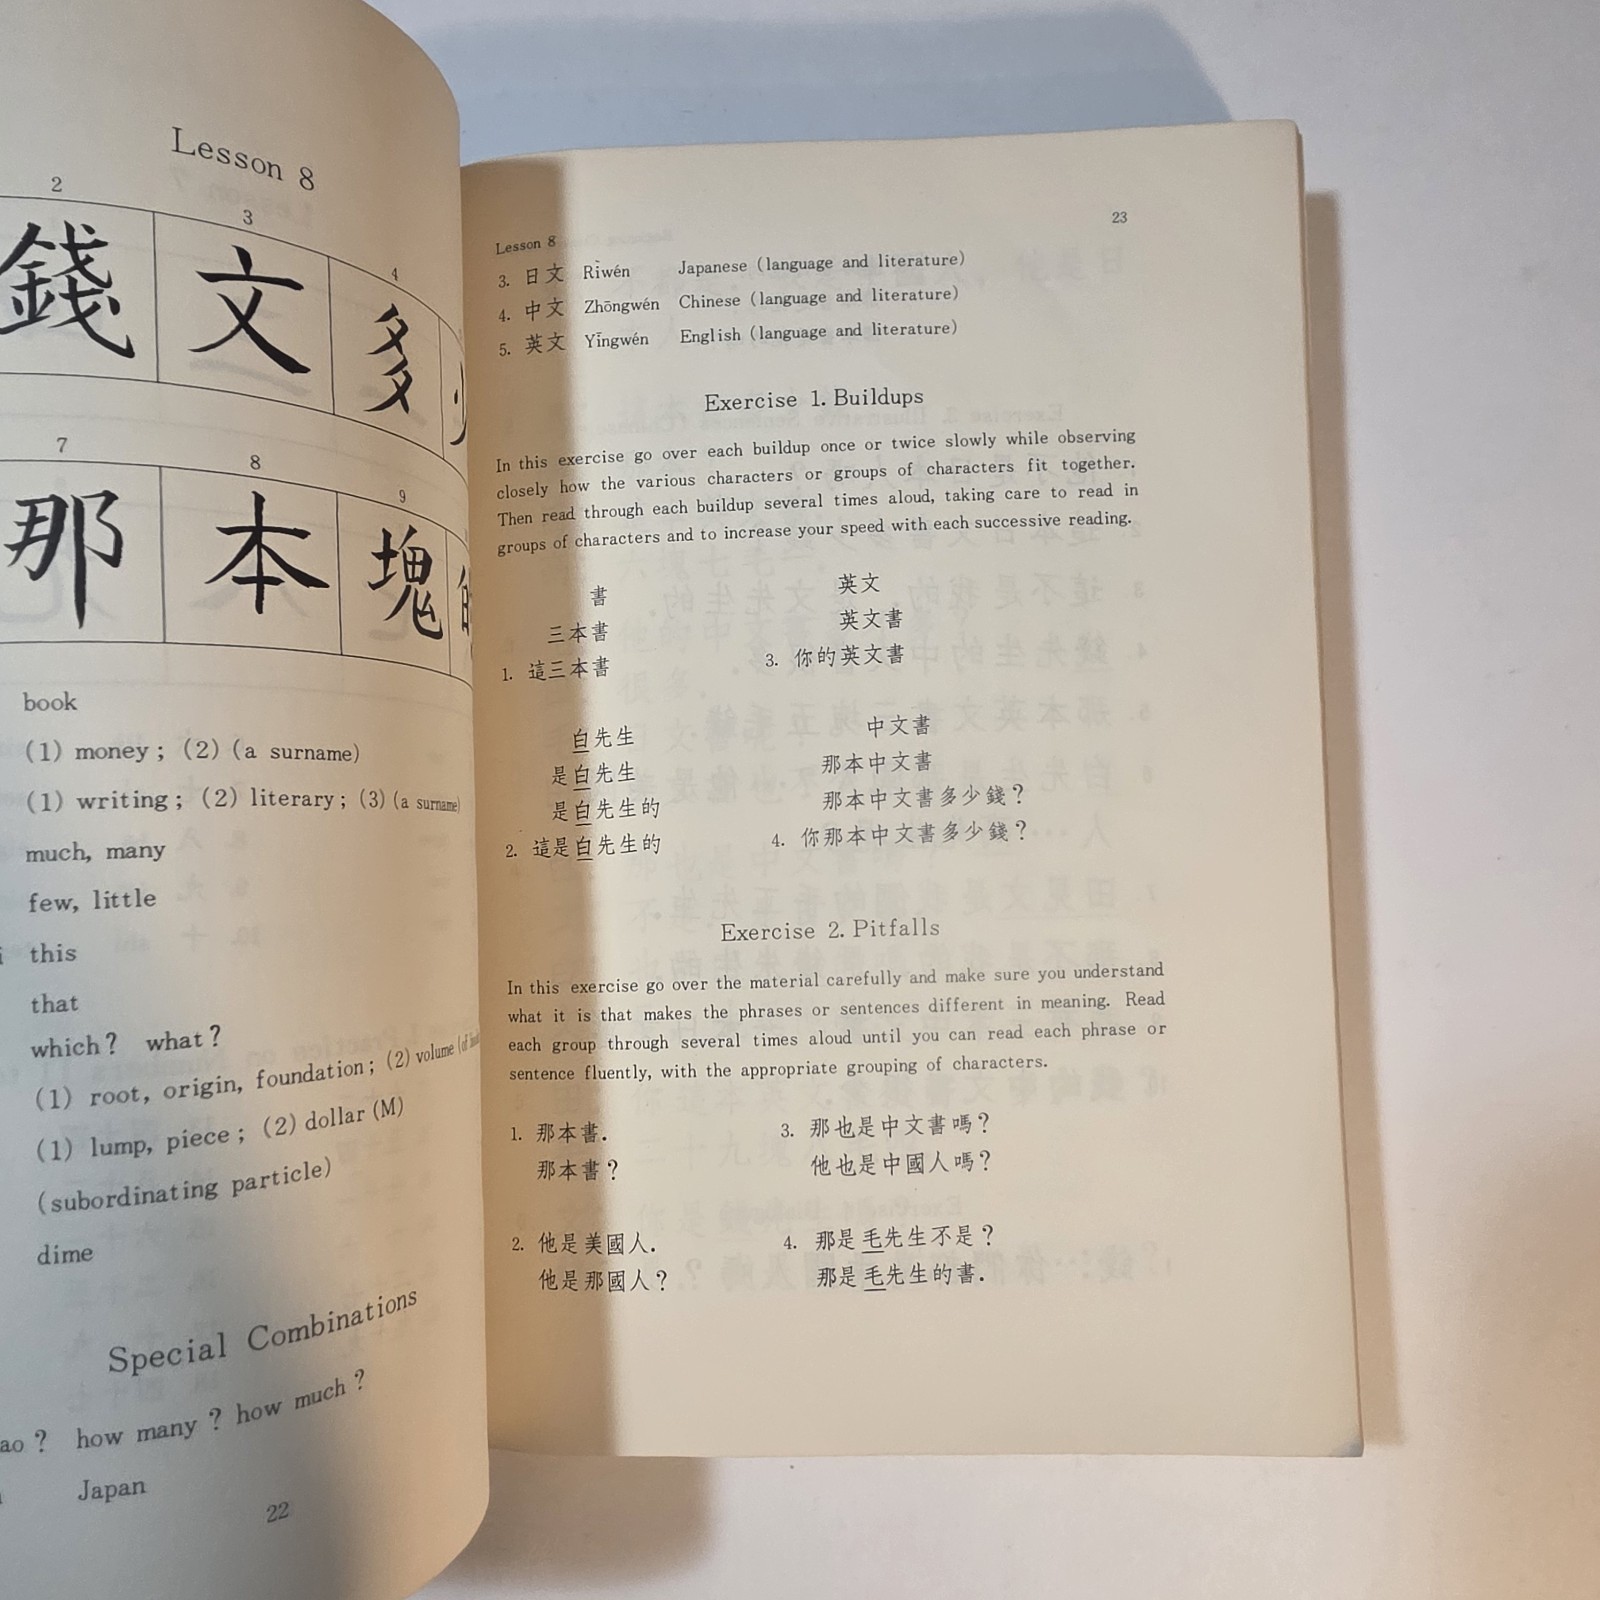 Lesson 8
2
3
4
錢
文
多
7
8
9
那
本
塊
book
(1) money; (2) (a surname)
(1) writing; (2) literary; (3) (a surname)
much, many
few, little
this
that
which? what?
(1) root, origin, foundation; (2) volume (of
(1) lump, piece; (2) dollar (M)
(subordinating particle)
dime
Special Combinations
ao? how many? how much?
Japan
22
23
Lesson 8
3. 日文 Rìwén Japanese (language and literature)
4. 中文 Zhōngwén Chinese (language and literature)
5. 英文 Yīngwén English (language and literature)
Exercise 1. Buildups
In this exercise go over each buildup once or twice slowly while observing
closely how the various characters or groups of characters fit together.
Then read through each buildup several times aloud, taking care to read in
groups of characters and to increase your speed with each successive reading.
書
三本書
1. 這三本書
白先生
是白先生
是白先生的
2. 這是白先生的
英文
英文書
3. 你的英文書
中文書
那本中文書
那本中文書多少錢?
4. 你那本中文書多少錢?
Exercise 2. Pitfalls
In this exercise go over the material carefully and make sure you understand
what it is that makes the phrases or sentences different in meaning. Read
each group through several times aloud until you can read each phrase or
sentence fluently, with the appropriate grouping of characters.
1. 那本書.
那本書?
2. 他是美國人.
他是那國人?
3. 那也是中文書嗎?
他也是中國人嗎?
4. 那是毛先生不是?
那是毛先生的書.